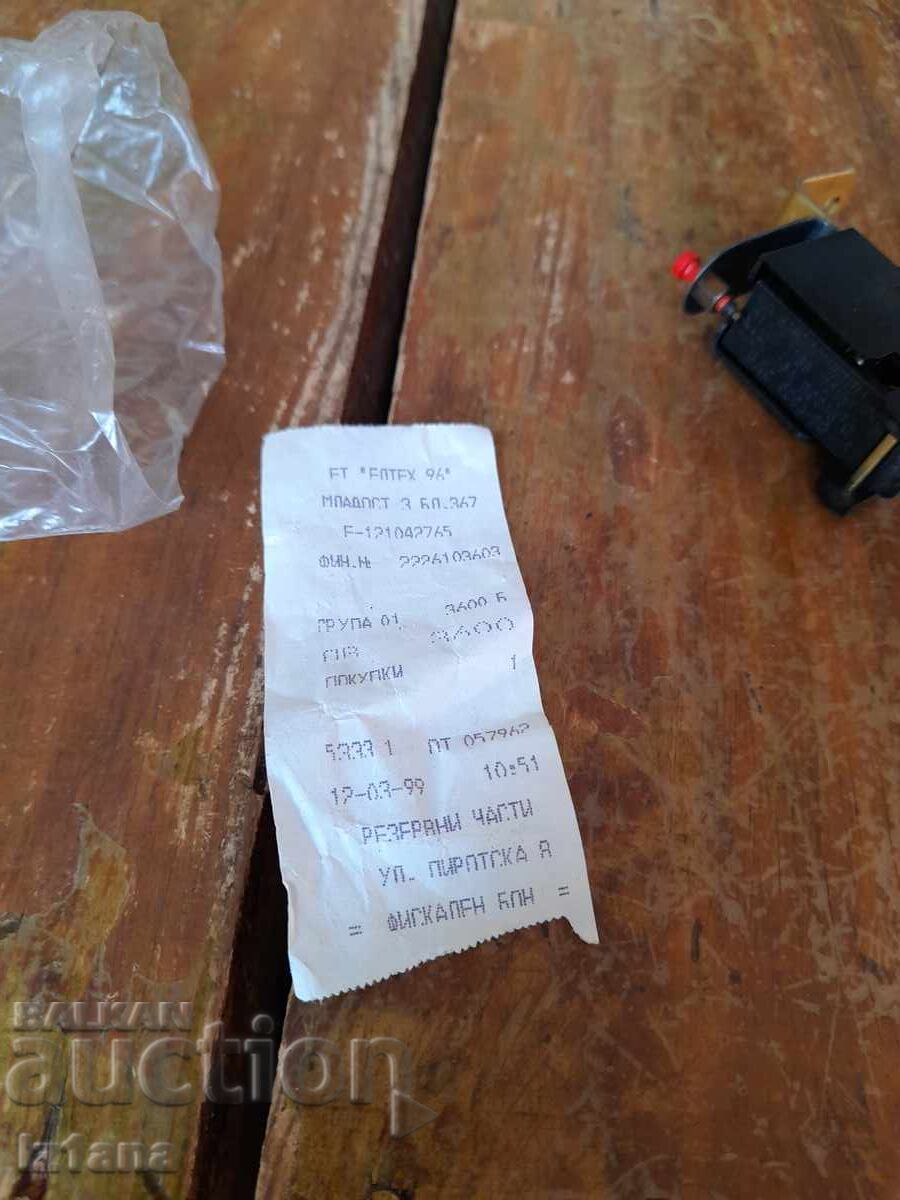 ЕТ "ЕЛТЕХ 96"
МЛАДОСТ 3 БЛ.367
F-121042765
ФИН.№ 2226103603
ГРУПА 01 3600 Б
СУМА 3600
ПОКУПКИ 1
5333 1 ОТ 057962
12-03-99 10:51
РЕЗЕРВНИ ЧАСТИ
УЛ. ПИРОТСКА 8
= ФИСКАЛЕН БОН =
BALKAN
auction
Iz1ana